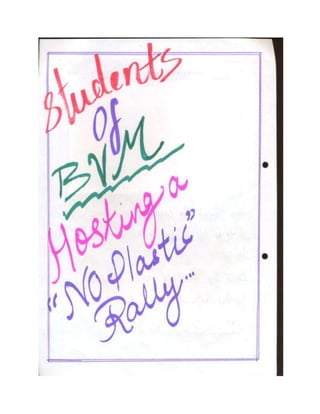 Students
Of
BVM
Hosting a
"NO Plastic"
Rally...